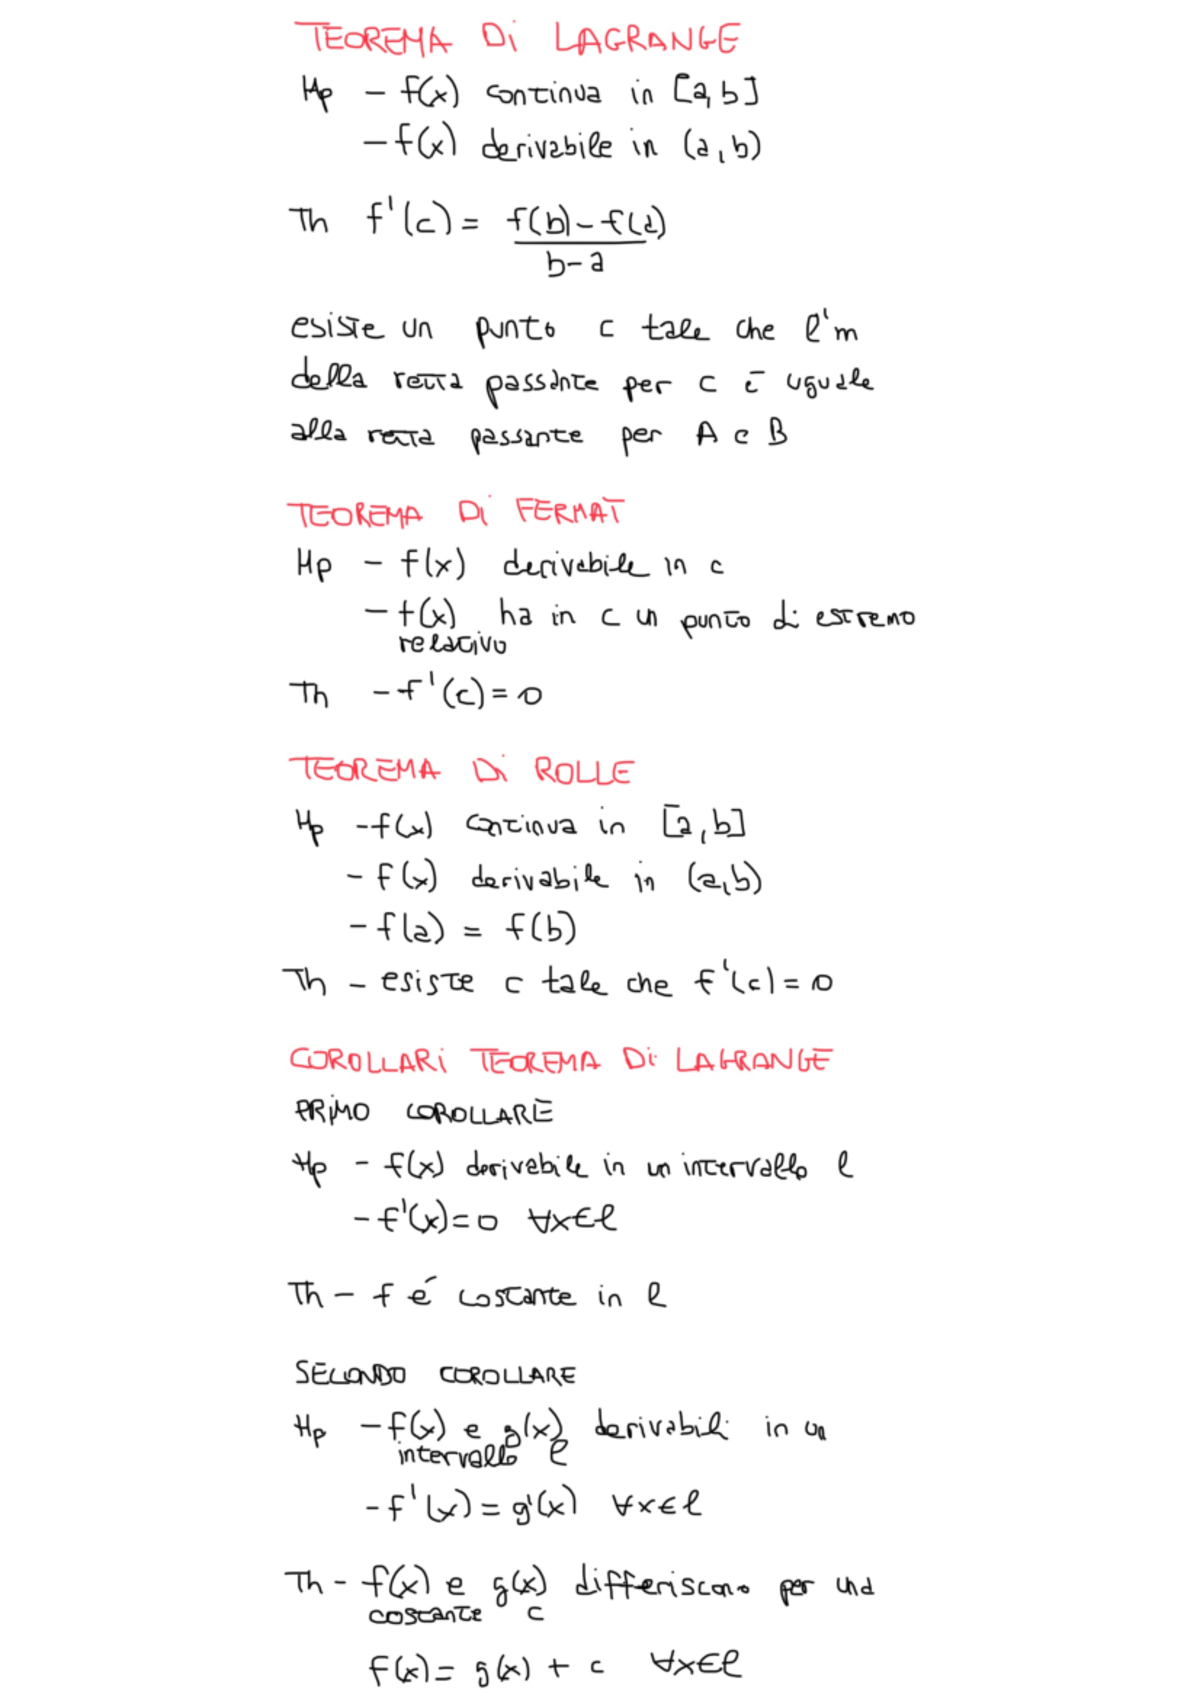 TEOREMA Di LAGRANGE
Hp - f(x) continua in [a,b]
- f(x) derivabile in (a,b)
Th f'(c) = f(b)-f(a)
b-a
esiste un punto c tale che l'm
della retta passante per c è uguale
alla retta passante per A e B
TEOREMA Di FERMAT
Hp - f(x) derivabile in c
- f(x) ha in c un punto di estremo
relativo
Th - f'(c) = 0
TEOREMA Di ROLLE
Hp - f(x) continua in [a,b]
- f(x) derivabile in (a,b)
- f(a) = f(b)
Th - esiste c tale che f'(c) = 0
COROLLARi TEOREMA Di LAGRANGE
PRiMO COROLLARE
Hp - f(x) derivabile in un intervallo l
- f'(x) = 0 ∀x∈l
Th - f é costante in l
SECONDO COROLLARE
Hp - f(x) e g(x) derivabili in un
intervallo l
- f'(x) = g'(x) ∀x∈l
Th - f(x) e g(x) differiscono per una
costante c
f(x) = g(x) + c ∀x∈l